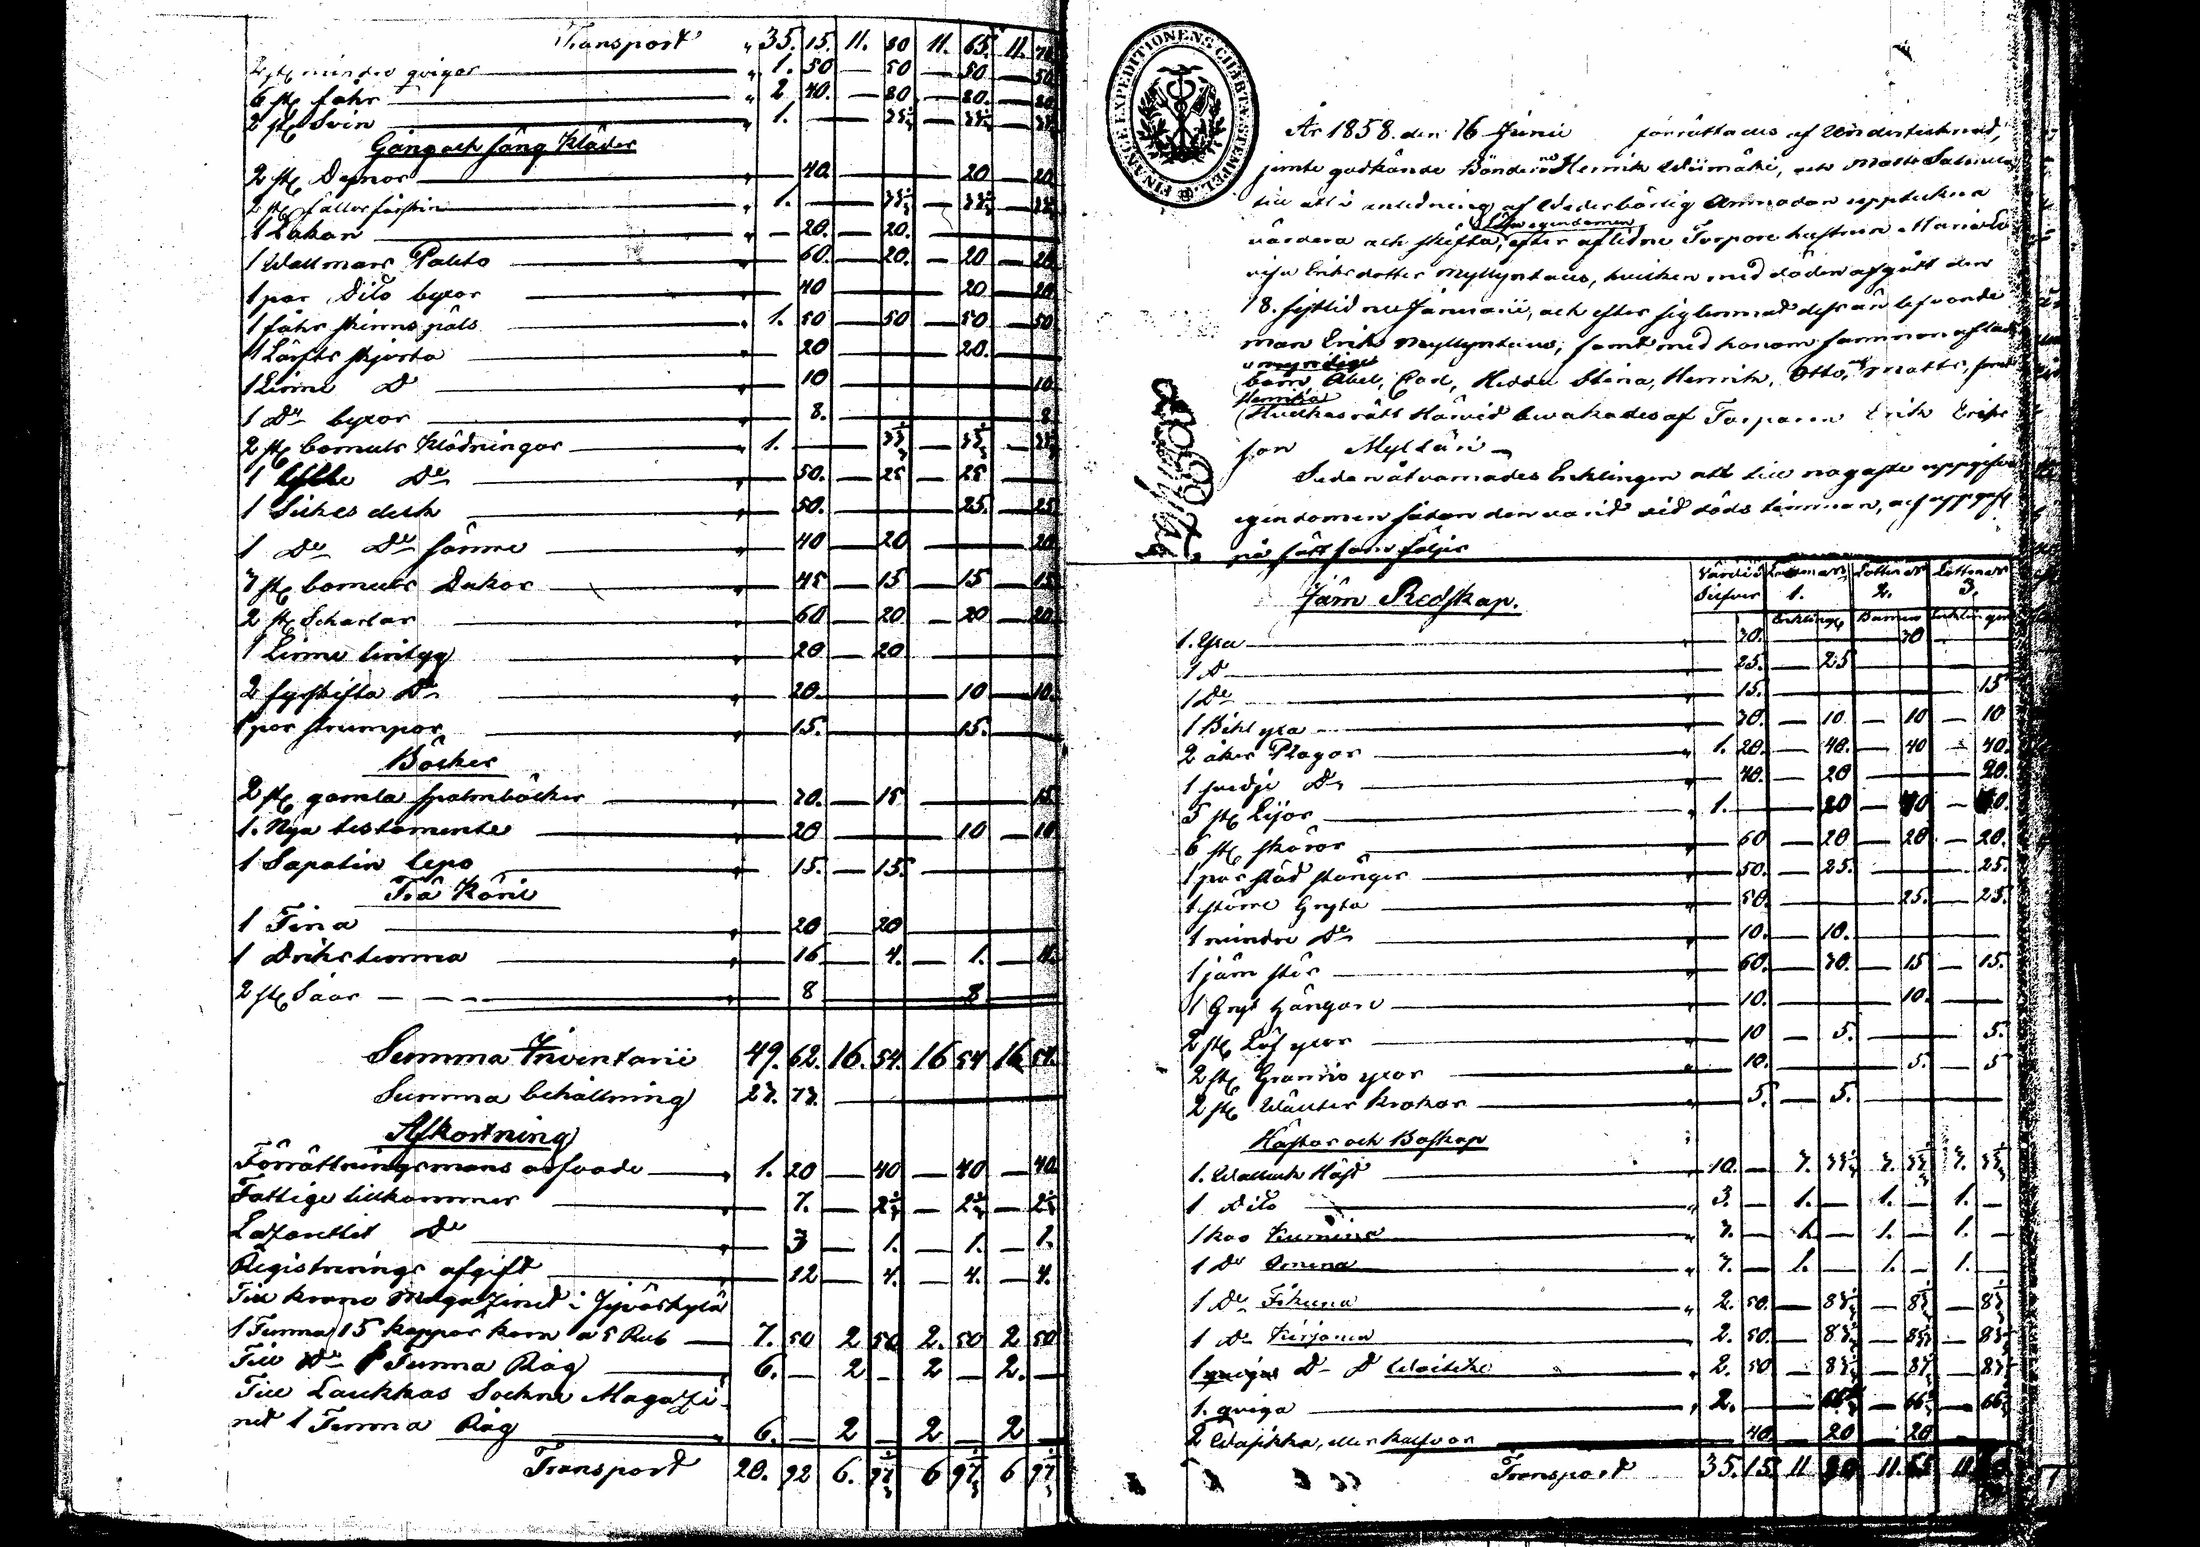 Transport " 35. 15. 11. 80 11. 65. 11. 70
2 st mindre qvigor " 1. 50 — 50 — 50 — 50
6 st fåhr " 2 40. — 80 — 80. — 80
2 st Svin " 1. — 33⅓ — 33⅓ — 33⅓
Gång och Säng Kläder
2 st Dynor " 40. 20 — 20
2 st fällar fårskin " 1. — 33⅓ — 33⅓ — 33⅓
1 Lakan " — 20. — 20.
1 Wallmars Palito " 60. — 20. — 20 — 20
1 par Dito byxor " 40 20 — 20
1 fåhr skinns päls " 1. 50 — 50 — 50 — 50
1 Lärfts skjorta " 20 20.
1 Linne D 10 10
1 Do byxor 8. 8
2 st bomuls Klädningar 1. — 33⅓ — 33⅓ — 33⅓
1 Do 50. — 25 — 25
1 Silkes duk " 50. 25. — 25
1 Do Do sämre " 40 — 20 20
3 st bomuls Dukar " 45 — 15 — 15 — 15
2 st Scharlar " 60 — 20 — 20 — 20
1 Linne lintyg " 20 — 20
2 fyskifta Do " 20. 10 — 10.
1 par strumpor " 15. 15.
Böcker
2 st gamla psalmböcker " 30. — 15 15
1. Nya testamente " 20 10 — 10
1 Sapatin lepo " 15. — 15.
Trä Käril
1 Tina " 20 20
1 Drikstunna " 16 — 4. — 1. — 11.
2 st Såar " 8 8
Summa Inventarii 49. 62. 16. 54. 16 54 16 54.
Summa behållning 27. 77.
Afkortning
Förrättningsmans arfvode " 1. 20 — 40 — 40 — 40
Fattige tillkommer " 7. — 2⅓ — 2⅓ — 2⅓
Lazarettet Do " 3 — 1. — 1. — 1.
Registrerings afgift 12 — 4. — 4. — 4.
Till krono Magazinet i Jyväskylä
1 Tunna 15 kappar korn a 5 Rub 7. 50 2 50 2. 50 2 50
Till Do 1 Tunna Råg " 6. — 2 — 2 — 2. —
Till Laukkas Sockne Magazi-
net 1 Tunna Råg " 6. — 2 — 2 — 2 —
Transport 20. 92 6. 97⅓ 6 97⅓ 6 97⅓
FINANCE EXPEDITIONENS CHARTÆ STEMPEL
År 1858. den 16 Junii förrättades af Undertecknad,
jemte godkände Bönderne Henrik Wiimäki, och Matts
till att i anledning af Wederbörlig Anmodan uppteckna
Qvarlåtenskapen
värdera och skifta, efter aflidne Torpare hustrun Maria Lo
visa Eriksdotter Myllyntaus, hvilken med döden afgått den
18. sistlidne Januarii, och efter sig lemnad desz än lefvande
man Erik Myllyntaus, samt med honom samman aflade
omyndige
barn, Abel, Carl, Hedda Stina, Henrik, Otto, och Matts, samt
Henrika
Hvilkas rätt Härvid bevakades af Torparen Erik Eriks
son Mylläri
Sedan åtvarnades Enklingen att till nogaste uppgifva
egendomen sådan den varit vid döds timman, och uppgift
på sätt som följer
Järn Redskap.
Värdie Silfver Lotten No 1. Lotten No 2. Lotten No 3.
Enklingen Barnen Enklingen
1. Yxa 30. 30
1 D 25. — 25
1 Do 15. 15
1 Bihl yxa 30. — 10 — 10 — 10
2 åker Plogar " 1. 20. — 40. — 40 — 40.
1 svedje Do 40. — 20 20.
5 st Lijor " 1. — 20 — 40 — 40.
6 st skäror " 60 — 20 — 20 — 20.
1 par städ stänger " 50. — 25. 25.
1 större Gryta " 50. 25. — 25
1 mindre Do " 10. — 10.
1 järn stör " 60. — 30. — 15 — 15.
1 Gryt hängare " 10. 10.
2 st Löf yxor " 10 — 5. 5.
2 st Grannis yxor " 10. 5. — 5
2 st Wälter krokar " 5. — 5.
Hästar och Boskap
1. Wallack Häst " 10. — 3. 33⅓ 3. 33⅓ 3. 33⅓
1 Dito " 3. — 1. — 1. — 1. —
1 ko 3. — 1. — 1. — 1. —
1 Do Omena " 3. — 1. — 1. — 1. —
1 Do Tikuna " 2. 50. — 83⅓ — 83⅓ — 83⅓
1 Do Kirjana " 2. 50 — 83⅓ — 83⅓ — 83⅓
1 Do D 2. 50 — 83⅓ — 83⅓ — 83⅓
1. qviga " 2. — 66⅔ — 66⅔ — 66⅔
2 Wasikka, eller kalfvar 40 — 20 — 20
Transport 35. 15. 11 80 11. 65 11. 70